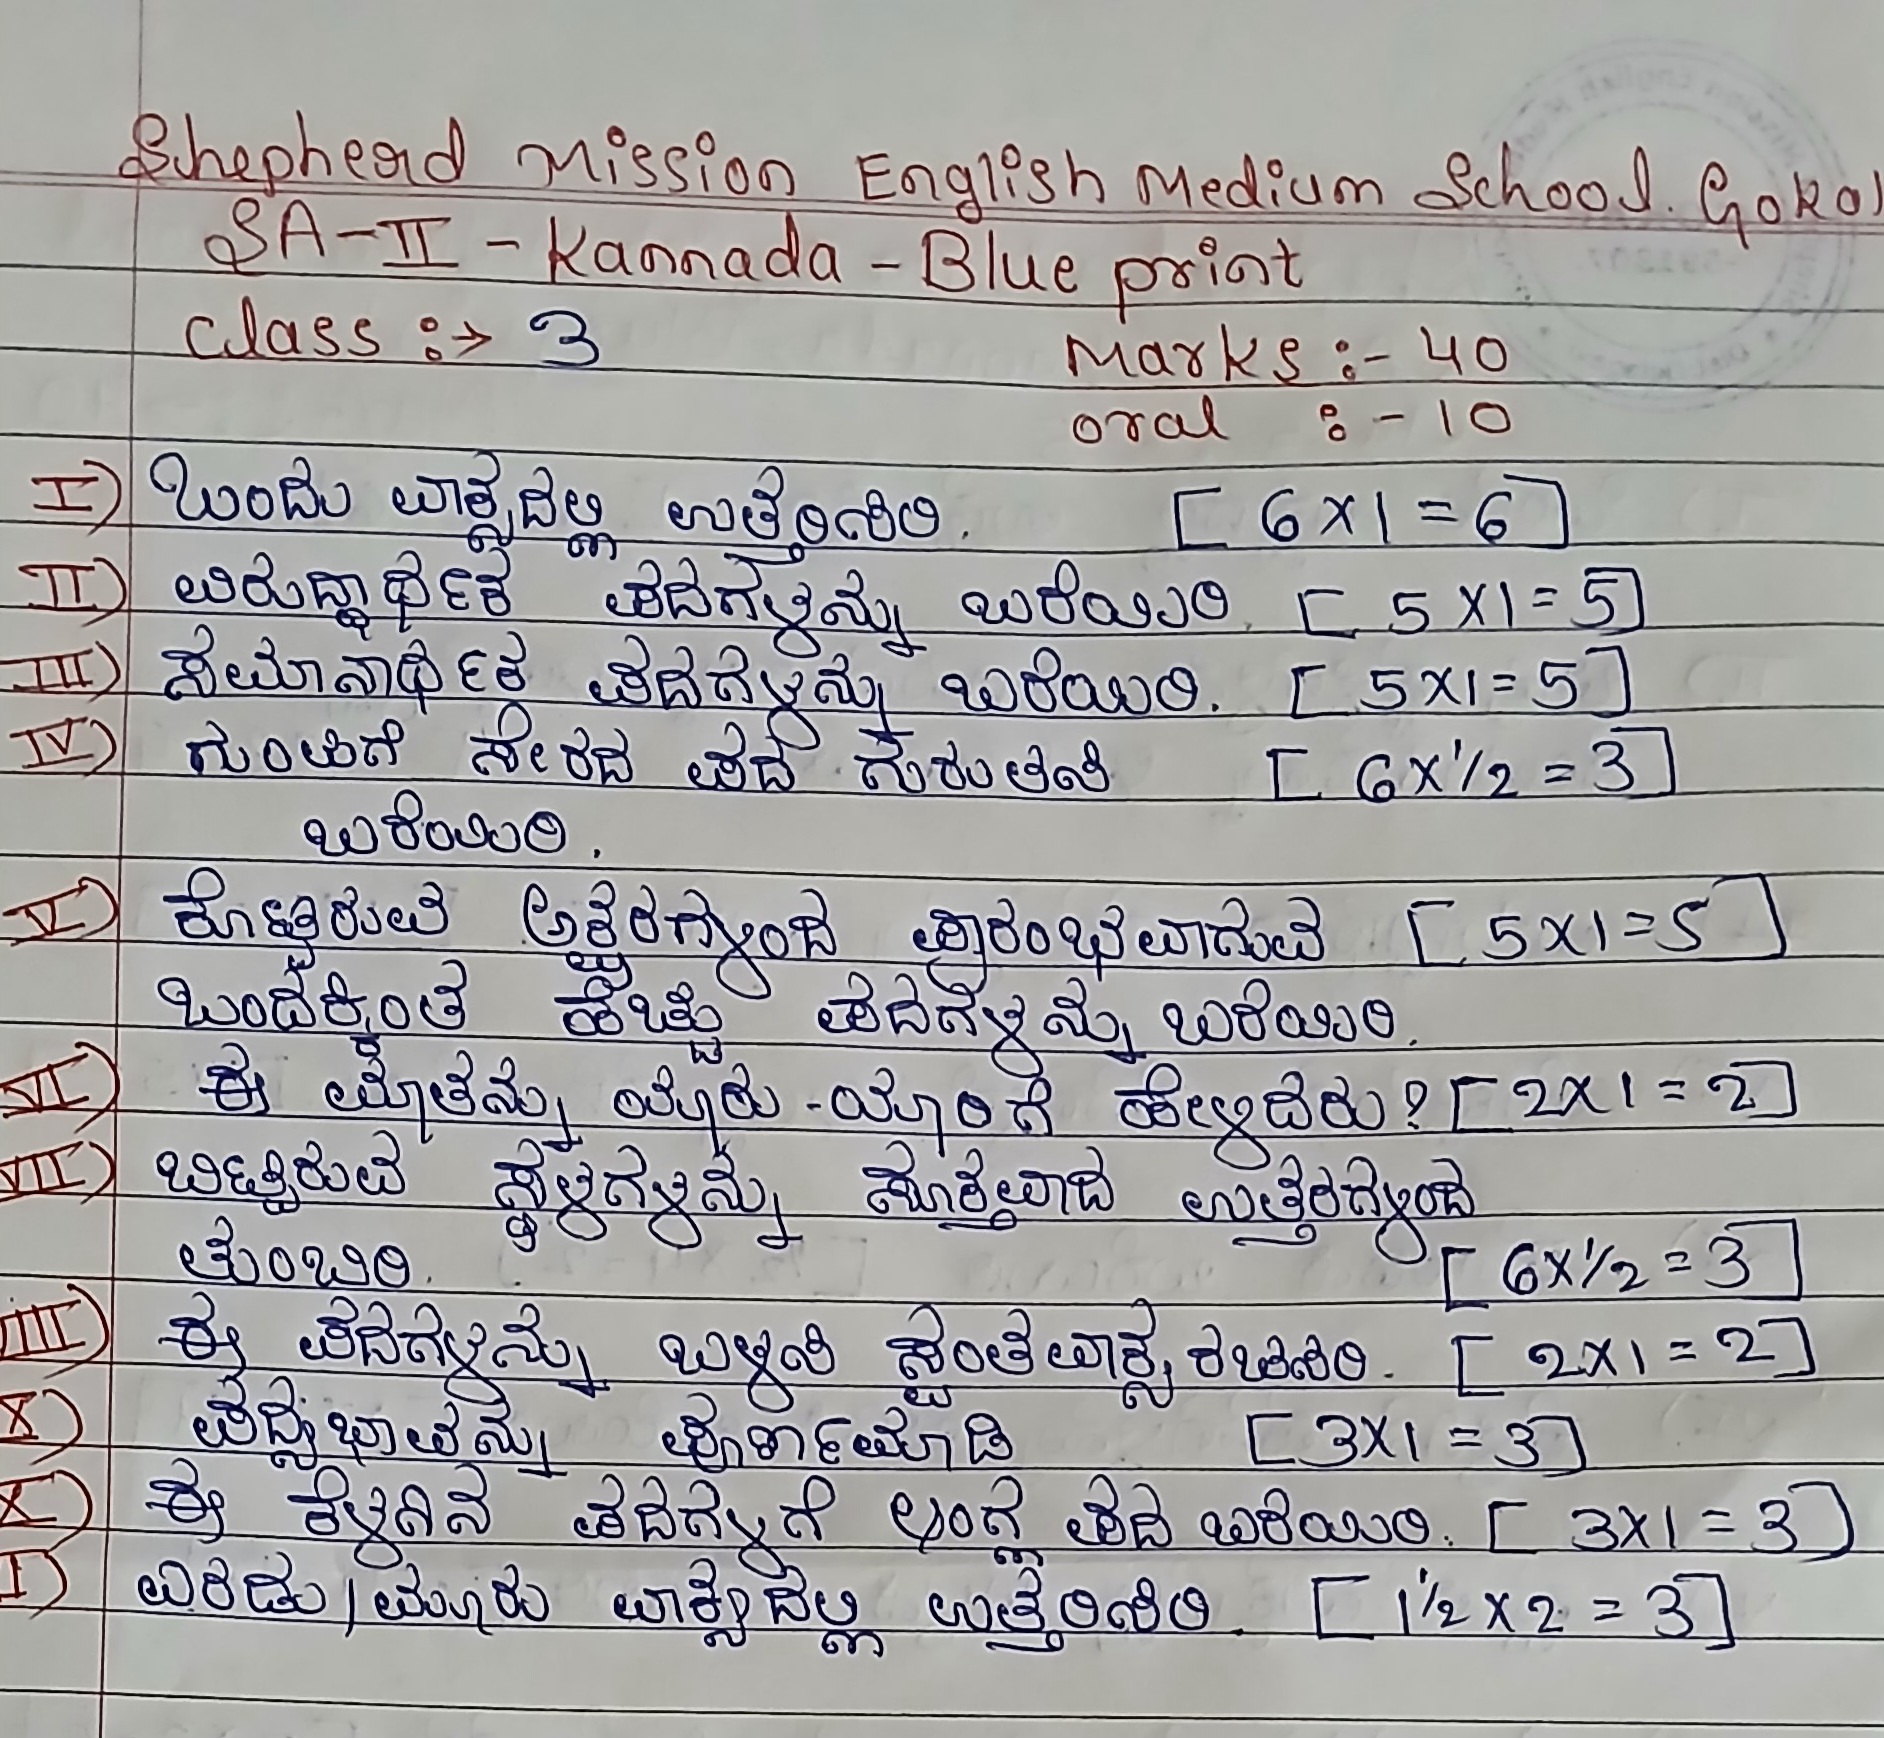 Shepherd Mission English Medium School. Goka
SA-II - Kannada - Blue print
Class :→ 3 Marks :- 40
oral :- 10
I) ಒಂದು ವಾಕ್ಯದಲ್ಲಿ ಉತ್ತರಿಸಿರಿ. [ 6 x 1 = 6 ]
II) ವಿರುದ್ಧಾರ್ಥಕ ಪದಗಳನ್ನು ಬರೆಯಿರಿ. [ 5 x 1 = 5 ]
III) ಸಮಾನಾರ್ಥಕ ಪದಗಳನ್ನು ಬರೆಯಿರಿ. [ 5 x 1 = 5 ]
IV) ಗುಂಪಿಗೆ ಸೇರದ ಪದ ಗುರುತಿಸಿ [ 6 x 1/2 = 3 ]
ಬರೆಯಿರಿ.
V) ಕೊಟ್ಟಿರುವ ಅಕ್ಷರಗಳಿಂದ ಪ್ರಾರಂಭವಾಗುವ [ 5 x 1 = 5 ]
ಒಂದಕ್ಕಿಂತ ಹೆಚ್ಚು ಪದಗಳನ್ನು ಬರೆಯಿರಿ.
VI) ಈ ಮಾತನ್ನು ಯಾರು - ಯಾರಿಗೆ ಹೇಳಿದರು? [ 2 x 1 = 2 ]
VII) ಬಿಟ್ಟಿರುವ ಸ್ಥಳಗಳನ್ನು ಸೂಕ್ತವಾದ ಉತ್ತರಗಳಿಂದ
ತುಂಬಿರಿ. [ 6 x 1/2 = 3 ]
III) ಈ ಪದಗಳನ್ನು ಬಳಸಿ ಸ್ವಂತವಾಕ್ಯ ರಚಿಸಿರಿ. [ 2 x 1 = 2 ]
X) ಪದ್ಯಭಾಗವನ್ನು ಪೂರ್ಣಮಾಡಿ [ 3 x 1 = 3 ]
X) ಈ ಕೆಳಗಿನ ಪದಗಳಿಗೆ ಲಿಂಗ ಪದ ಬರೆಯಿರಿ. [ 3 x 1 = 3 ]
I) ಎರಡು / ಮೂರು ವಾಕ್ಯದಲ್ಲಿ ಉತ್ತರಿಸಿರಿ. [ 1 1/2 x 2 = 3 ]